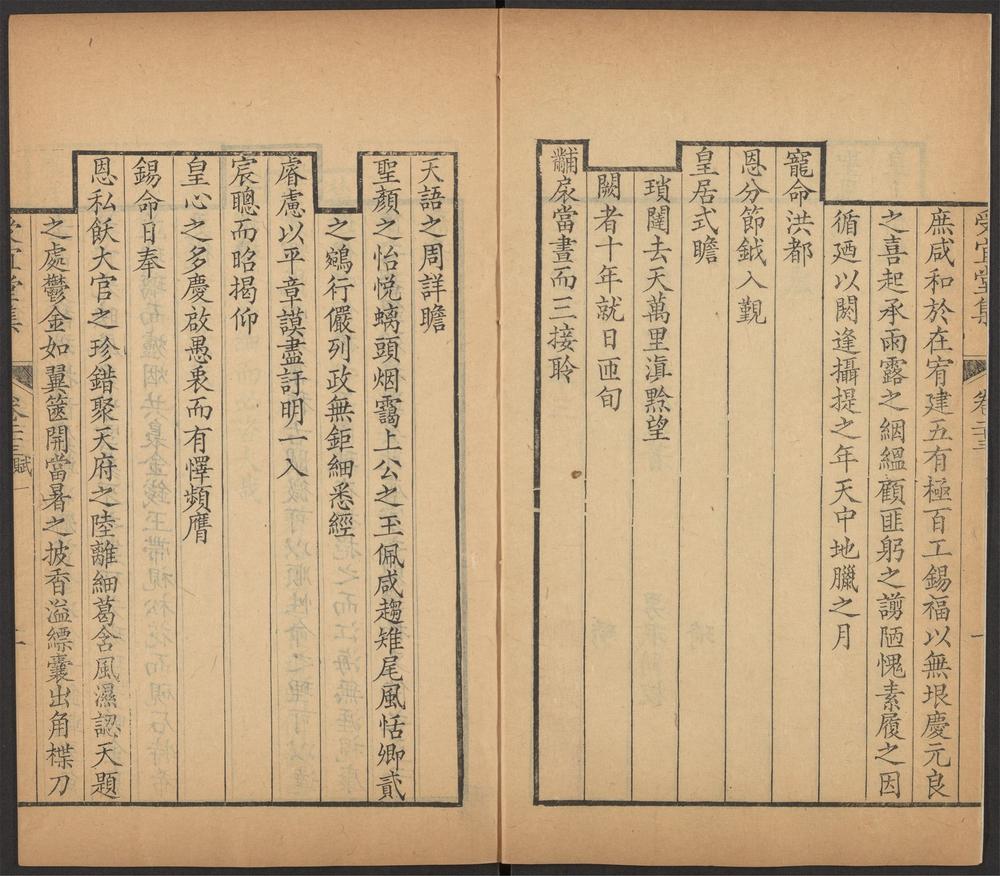 受宜堂集 卷二十三 一
庶咸和於在宥建五有極百工錫福以無垠慶元良
之喜起承雨露之絪縕顧匪躬之謭陋愧素履之因
循廼以閼逢攝提之年天中地臘之月
寵命洪都
恩分節鉞入覲
皇居式瞻
瑣闥去天萬里滇黔望
闕者十年就日匝旬
黼扆當晝而三接聆
天語之周詳瞻
聖顏之怡悅螭頭烟靄上公之玉佩咸趨雉尾風恬卿貳
之鵷行儼列政無鉅細悉經
睿慮以平章謨盡訏明一入
宸聰而昭揭仰
皇心之多慶啟愚衷而有懌頻膺
錫命日奉
恩私飫大官之珍錯聚天府之陸離細葛含風濕認天題
之處鬱金如翼篋開當暑之披香溢縹囊出角楪刀
受宜堂集 卷二十三賦 二